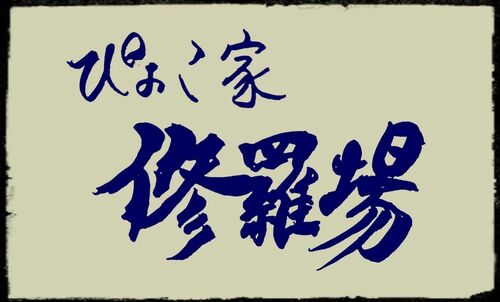 ぴよこ家
修羅場